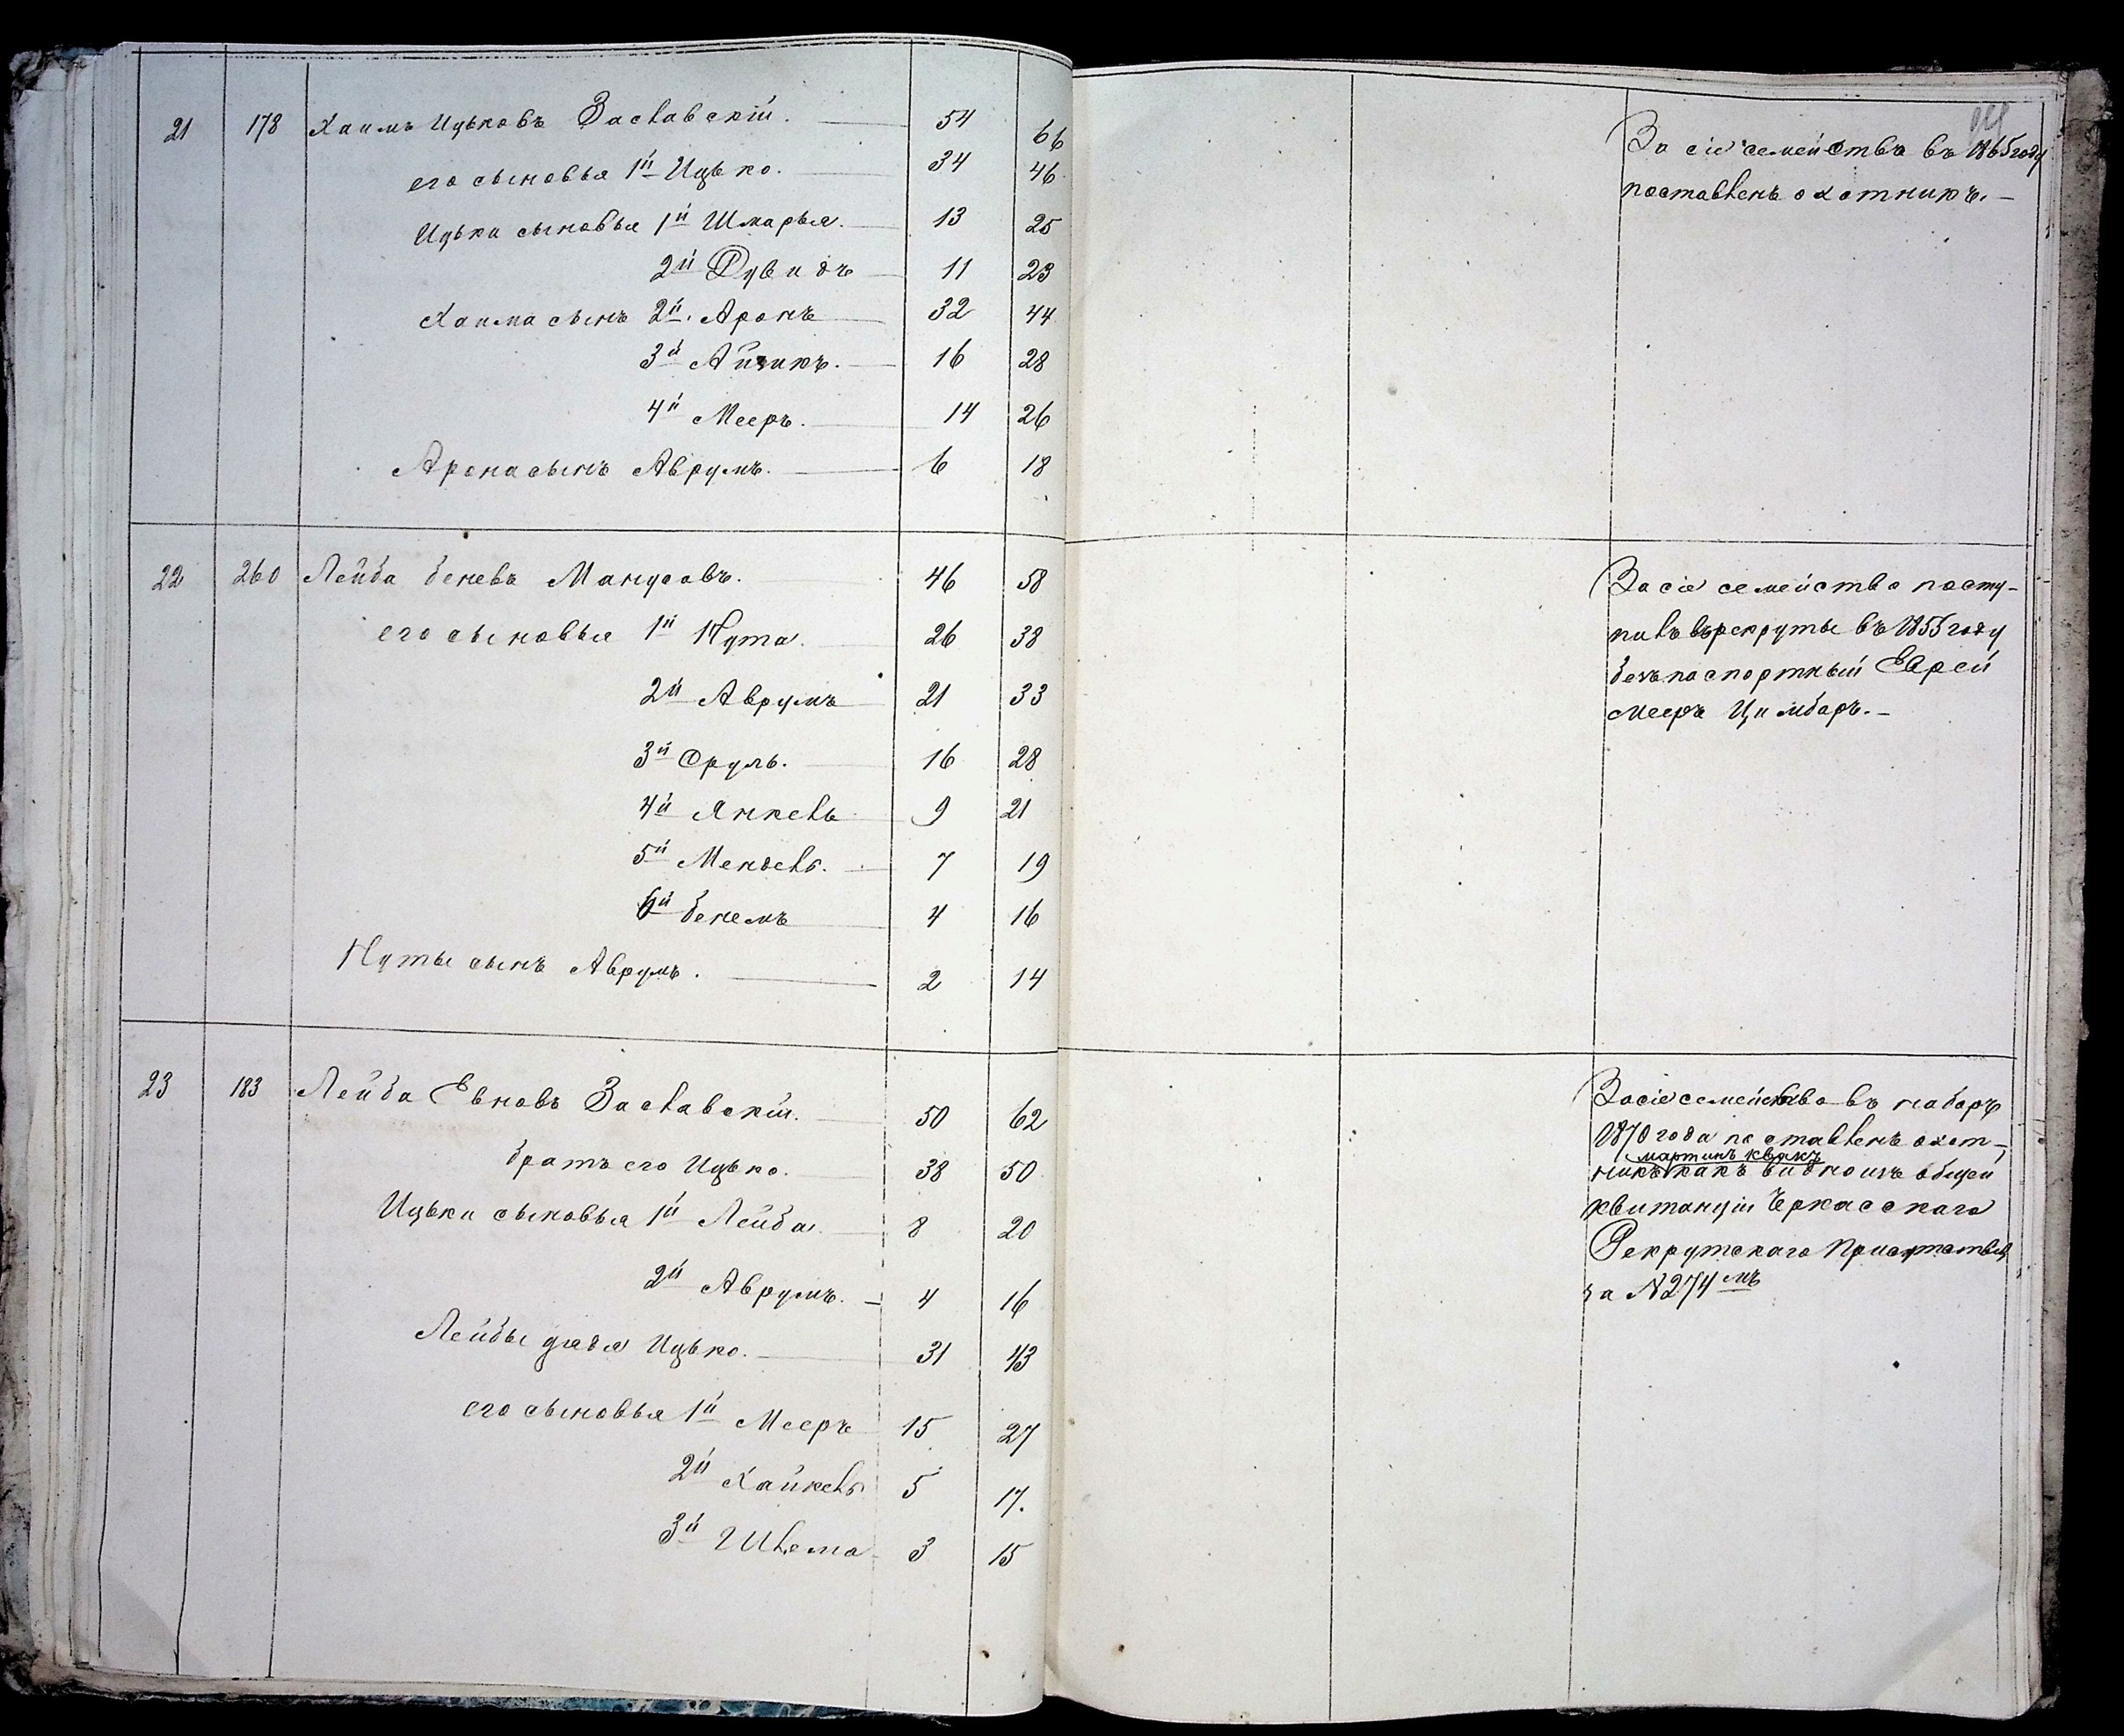 21 178 Хаимъ Ицьковъ Заславскій. 54 66
его сыновья 1й Ицько. 34 46
Ицьки сыновья 1й Шмарья. 13 25
2й Дувидъ 11 23
Хаима сынъ 2й. Аронъ 32 44
3й Айзикъ. 16 28
4й Мееръ. 14 26
Арона сынъ Аврумъ. 6 18
За сіе семейство въ 1865 году
поставленъ охотникъ. —
22 260 Лейба Беневъ Манусовъ. 46 58
его сыновья 1й Нута. 26 38
2й Аврумъ 21 33
3й Сруль. 16 28
4й Янкель 9 21
5й Мендель. 7 19
6й Бенемъ 4 16
Нуты сынъ Аврумъ. 2 14
За сіе семейство посту-
пилъ въ рекруты въ 1855 году
безъпаспортный Еврей
Мееръ Цимбаръ. —
23 183 Лейба Евновъ Заславскій. 50 62
братъ его Ицько. 38 50
Ицьки сыновья 1й Лейба. 8 20
2й Аврумъ. 4 16
Лейбы дядя Ицько. 31 43
его сыновья 1й Мееръ 15 27
2й Хайкель 5 17.
3й Шлема 3 15
За сіе семейство въ наборъ
1870 года поставленъ охот-
мартинъ квакъ
никъ какъ видно изъ общей
квитанціи Черкасскаго
Рекрутскаго Присутствія
за N 274мъ